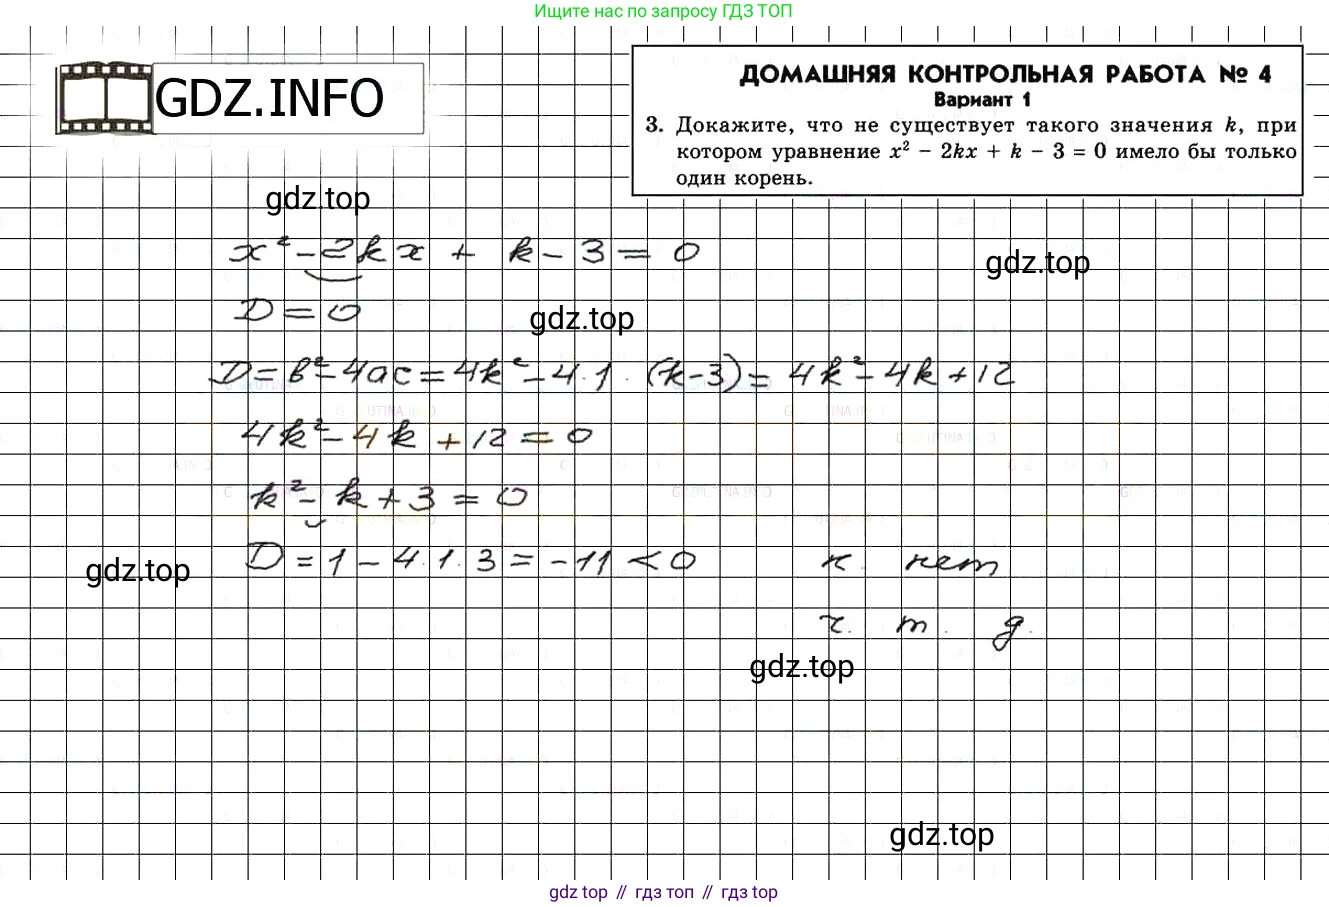 Ищите нас по запросу ГДЗ ТОП
GDZ.INFO
ДОМАШНЯЯ КОНТРОЛЬНАЯ РАБОТА № 4
Вариант 1
3. Докажите, что не существует такого значения k, при
котором уравнение x² − 2kx + k − 3 = 0 имело бы только
один корень.
gdz.top
x² − 2kx + k − 3 = 0
gdz.top
D = 0
gdz.top
D = в² − 4ac = 4k² − 4·1·(k−3) = 4k² − 4k + 12
4k² − 4k + 12 = 0
k² − k + 3 = 0
D = 1 − 4·1·3 = −11 < 0 к. нет
gdz.top
ч. т. д.
gdz.top
gdz.top
gdz top // гдз топ // gdz top